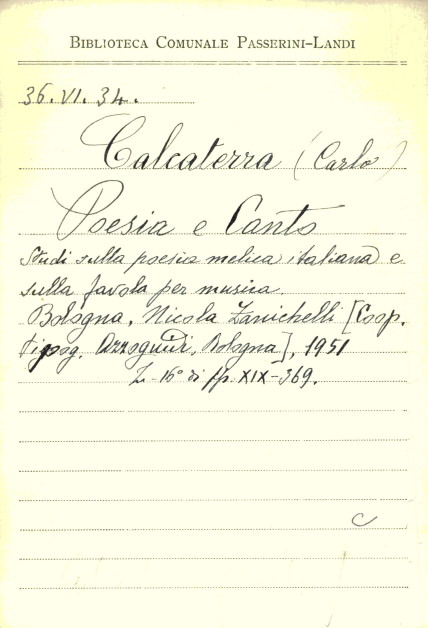 BIBLIOTECA COMUNALE PASSERINI-LANDI
36.VI.34.
Calcaterra (Carlo)
Poesia e Canto
Studi sulla poesia melica italiana e
sulla favola per musica.
Bologna, Nicola Zanichelli [Coop.
Tipog. Azzoguidi, Bologna], 1951
16° di pp. XIX-369.
C